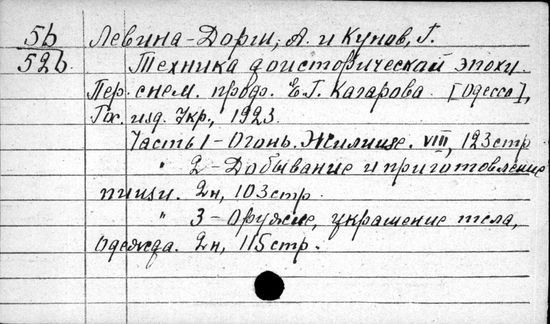 5б Левина-Дорш, А. и Кунов, Г.
52б. Техника доисторической эпохи.
Пер. с нем. проф. Е.Г. Кагарова. [Одесса],
Гос. изд. Укр., 1923.
Часть 1 – Огонь. Жилище. VIII, 123 стр
" 2 – Добывание и приготовление
пищи. 2н, 103 стр.
" 3 – Оружие, украшение тела,
одежда. 2н, 115 стр.